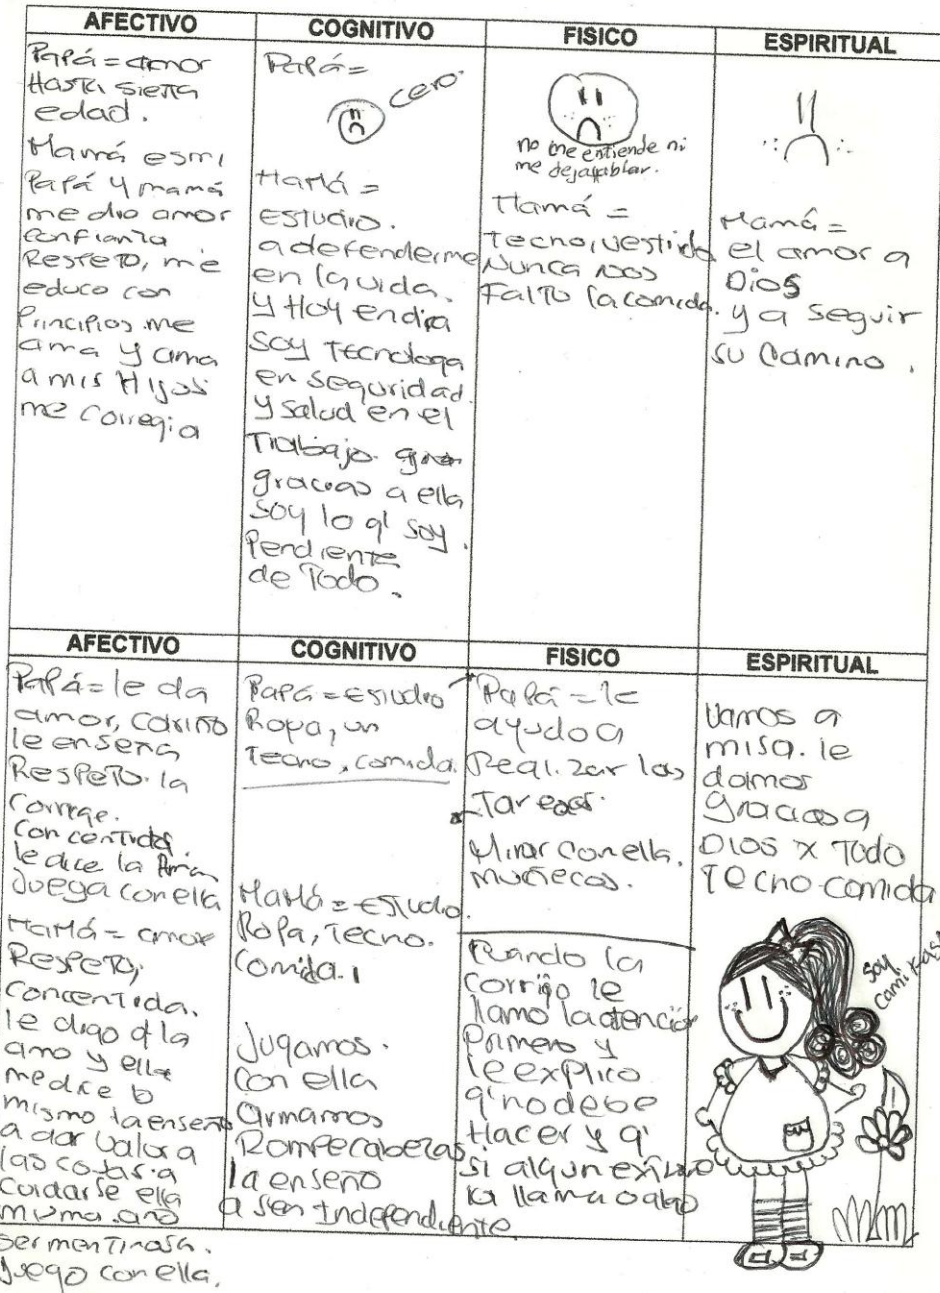 AFECTIVO
Papá = amor
Hasta sierta
edad.
Mamá es mi
Papá y mamá
me dio amor
confianza
Respeto, me
educo con
Principios me
ama y ama
a mis Hijos
me corregia
COGNITIVO
Papá =
cero.
Mamá =
Estudio.
a defenderme
en la vida.
y Hoy en dia
soy Tecnologa
en seguridad
y salud en el
Trabajo.
gracias a ella
soy lo q' soy.
Pendiente
de Todo.
FISICO
no me entiende ni
me deja hablar.
Mamá =
Tecno, vestido
Nunca nos
Falto la comida.
ESPIRITUAL
Mamá =
el amor a
Dios
y a seguir
su Camino.
AFECTIVO
Papá = le da
amor, cariño
le enseña
Respeto. la
corrige.
Consentida.
le dice la Ama
Juega con ella
Mamá = amor
Respeto,
Concentida.
le digo q la
amo y ella
me dice lo
mismo la enseño
a dar valor a
las cosas. a
cuidarse ella
misma. a no
ser mentirosa.
Juego con ella.
COGNITIVO
Papá = Estudio
Ropa, un
Tecno, comida.
Mamá = Estudio.
Ropa, Tecno.
Comida.
Jugamos.
con ella
armamos
Rompecabezas
la enseño
a ser Independiente.
FISICO
Papá = le
ayudo a
Realizar las
Tareas.
Mirar con ella.
muñecos.
Cuando la
corrijo le
llamo la atención
Primero y
le explico
q' no debe
Hacer y q'
si algun extraño
la llama o algo
ESPIRITUAL
Vamos a
misa. le
damos
gracias a
DIOS x Todo
Tecno-comida
Soy